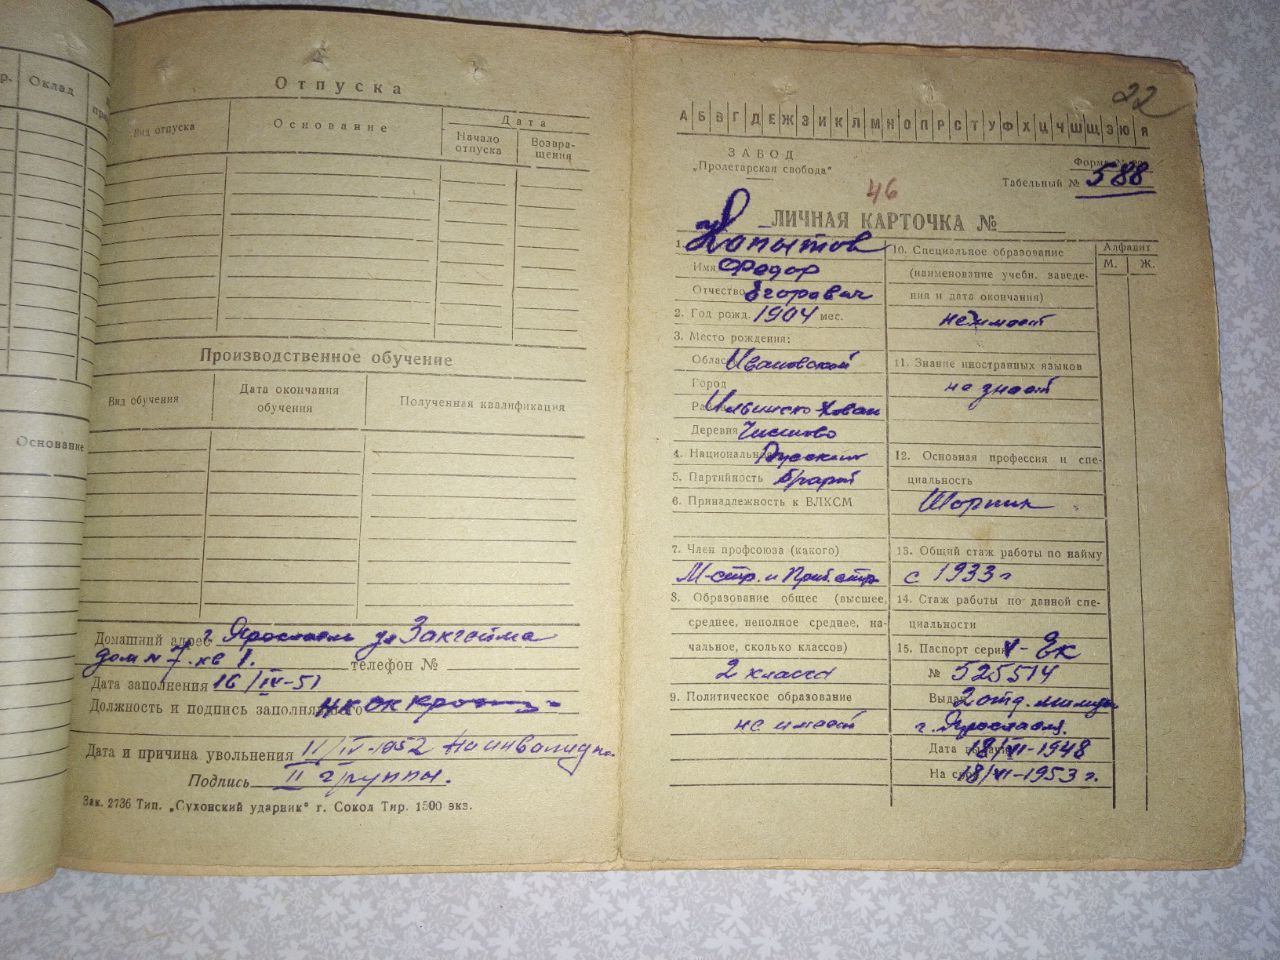 Оклад
Основание
Отпуска
Вид отпуска
Основание
Дата
Начало отпуска
Возвра-щения
Производственное обучение
Вид обучения
Дата окончания обучения
Полученная квалификация
Домашний адрес г. Ярославль ул Закгейма
дом № 7. кв 1. телефон №
Дата заполнения 16/IV-51
Должность и подпись заполнявшего НКОК
Дата и причина увольнения 11/IV-1952 На инвалидн.
Подпись II группы.
Зак. 2736 Тип. „Сухонский ударник" г. Сокол Тир. 1500 экз.
22
А Б В Г Д Е Ж З И К Л М Н О П Р С Т У Ф Х Ц Ч Ш Щ Э Ю Я
ЗАВОД
„Пролетарская свобода"
Форма №
Табельный № 588
46
ЛИЧНАЯ КАРТОЧКА №
1. Копытов
Имя Федор
Отчество Егорович
2. Год рожд. 1904 мес.
3. Место рождения:
Область Ивановской
Город
Район Ильинско-Хован
Деревня
4. Национальность Русский
5. Партийность б/парт
6. Принадлежность к ВЛКСМ
7. Член профсоюза (какого)
М-стр. и Приб. стр.
8. Образование общее (высшее,
среднее, неполное среднее, на-
чальное, сколько классов)
2 класса
9. Политическое образование
не имеет
10. Специальное образование
(наименование учебн. заведе-
ния и дата окончания)
не имеет
11. Знание иностранных языков
не знает
12. Основная профессия и спе-
циальность
Шорник
13. Общий стаж работы по найму
с 1933 г
14. Стаж работы по данной спе-
циальности
15. Паспорт серия V-ЕК
№ 525514
Выдан 2 отд. милиц.
г. Ярославля.
Дата выдачи 18/VI-1948
На срок 18/VI-1953 г.
Алфавит
М. Ж.